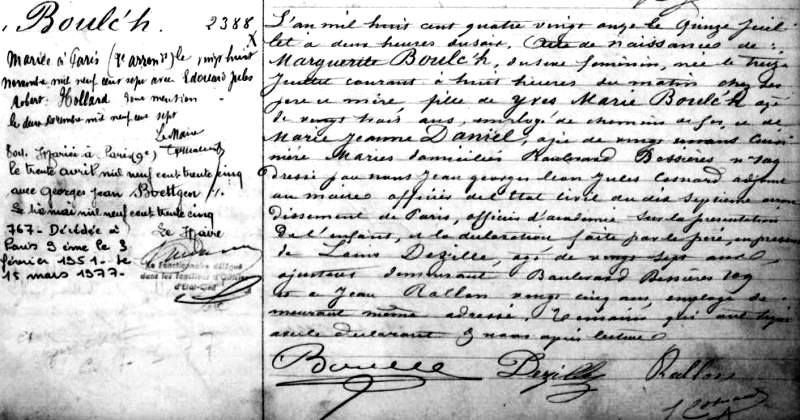 Boulc'h
2388
Mariée à Paris (7e arrondt) le vingt huit
novembre mil neuf cent sept avec Edouard Jules
Robert Hollard dont mention
le deux décembre mil neuf cent sept
Le Maire
Mariée à Paris (9e)
le trente avril mil neuf cent trente cinq
avec Georges Jean Boettgen
Le trois mai mil neuf cent trente cinq
767 - Décédée à
Le Maire
Paris 9 ème le 3
février 1951 - le
15 mars 1977 -
Le Fonctionnaire délégué
dans les fonctions d'Officier
d'Etat-Civil
L'an mil huit cent quatre vingt onze le quinze Juil
let à deux heures du soir. Acte de naissance de
Marguerite Boulc'h, du sexe féminin, née le treize
Juillet courant à huit heures du matin chez ses
père et mère, fille de Yves Marie Boulc'h agé
de vingt trois ans, employé de chemins de fer, et de
Marie Jeanne Daniel, agée de vingt ans Cuisi
nière Mariés domiciliés Boulevard Bessières no 109
Dressé par nous Jean Georges Léon Jules Cosnard adjoint
au maire officier de l'Etat Civil du dix septième arron
dissement de Paris, officier d'académie Sur la présentation
de l'enfant, et la déclaration faite par le père, en présence
de Louis Dezille, agé de vingt sept ans
ajusteur demeurant Boulevard Bessières 109
et de Jean Rallon vingt cinq ans, employé de
meurant même adresse. Témoins qui ont signé
avec le déclarant & nous après lecture
Boulch Dezille Rallon
J Cosnard